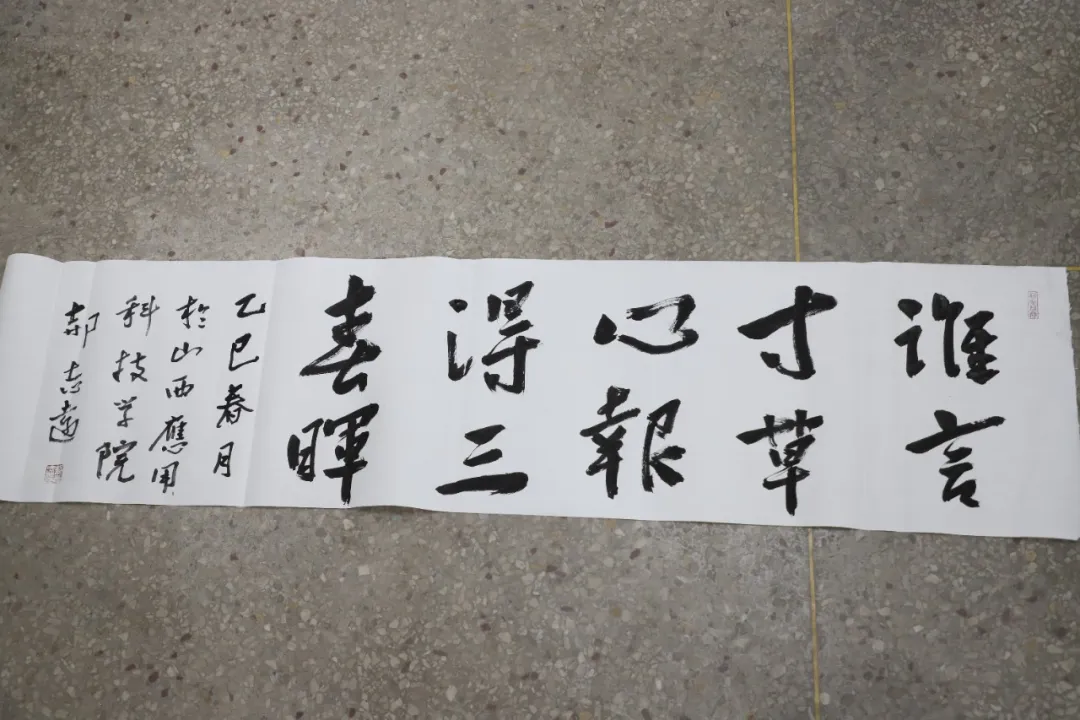 谁言
寸草
心報
得三
春暉
乙巳春月
於山西應用
科技学院
郝志